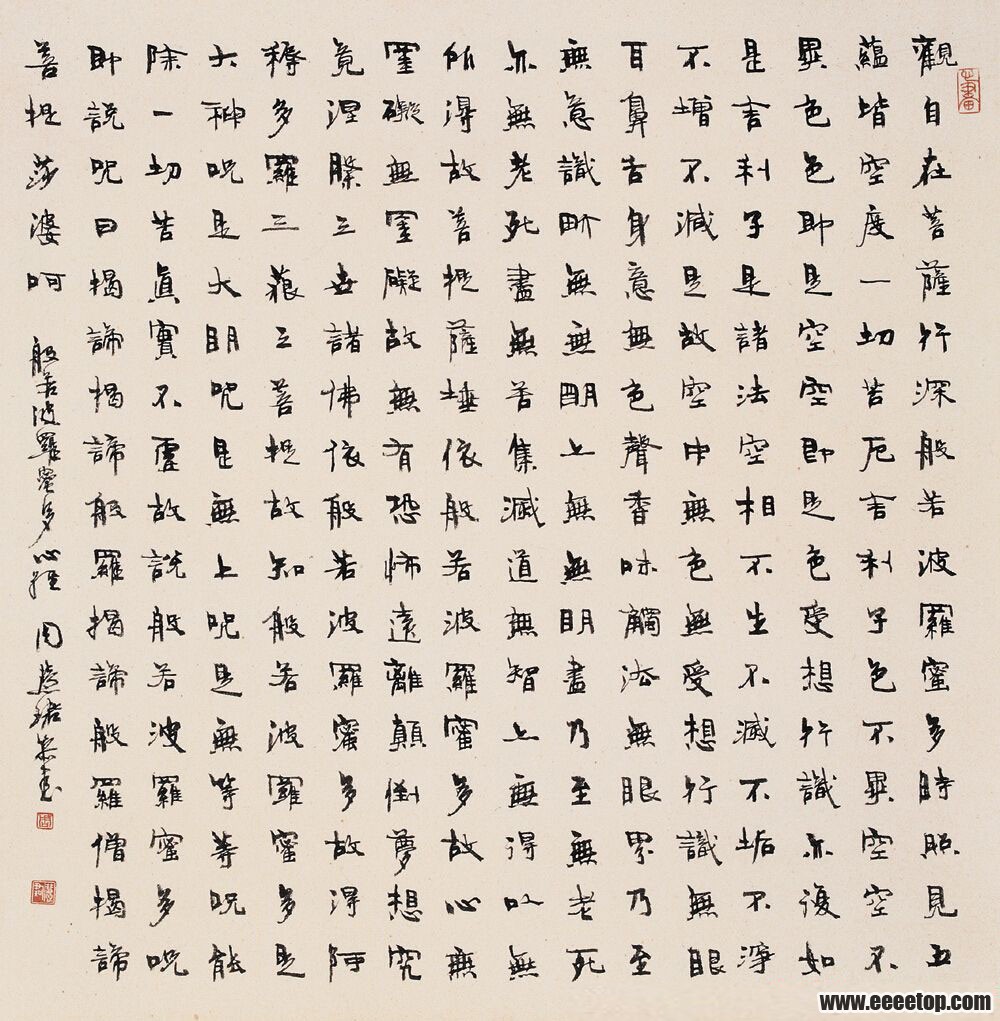 觀自在菩薩行深般若波羅蜜多時照見五
蘊皆空度一切苦厄舍利子色不異空空不
異色色即是空空即是色受想行識亦復如
是舍利子是諸法空相不生不滅不垢不淨
不增不減是故空中無色無受想行識無眼
耳鼻舌身意無色聲香味觸法無眼界乃至
無意識界無無明亦無無明盡乃至無老死
亦無老死盡無苦集滅道無智亦無得以無
所得故菩提薩埵依般若波羅蜜多故心無
罣礙無罣礙故無有恐怖遠離顛倒夢想究
竟涅槃三世諸佛依般若波羅蜜多故得阿
耨多羅三藐三菩提故知般若波羅蜜多是
大神咒是大明咒是無上咒是無等等咒能
除一切苦真實不虛故說般若波羅蜜多咒
即說咒曰揭諦揭諦般羅揭諦般羅僧揭諦
菩提莎婆呵
般若波羅蜜多心經 周慧珺恭書
www.eeeetop.com